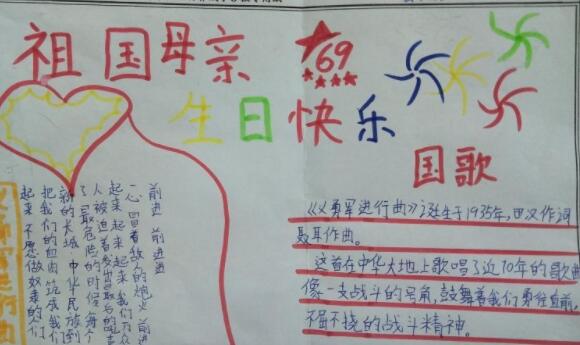 祖国母亲
69
生日快乐
义勇军进行曲
起来 不愿做奴隶的们
把我们的血肉 筑成我们
新的长城 中华民族到
了最危险的时候 每个
人被迫着发出最后的吼声
起来 起来 起来 我们万众
一心 冒着敌人的炮火 前进
前进 前进进
国歌
《义勇军进行曲》诞生于1935年,田汉作词
聂耳作曲。
这首在中华大地上歌唱了近70年的歌曲
像一支战斗的号角,鼓舞着我们勇往直前,
不屈不挠的战斗精神。